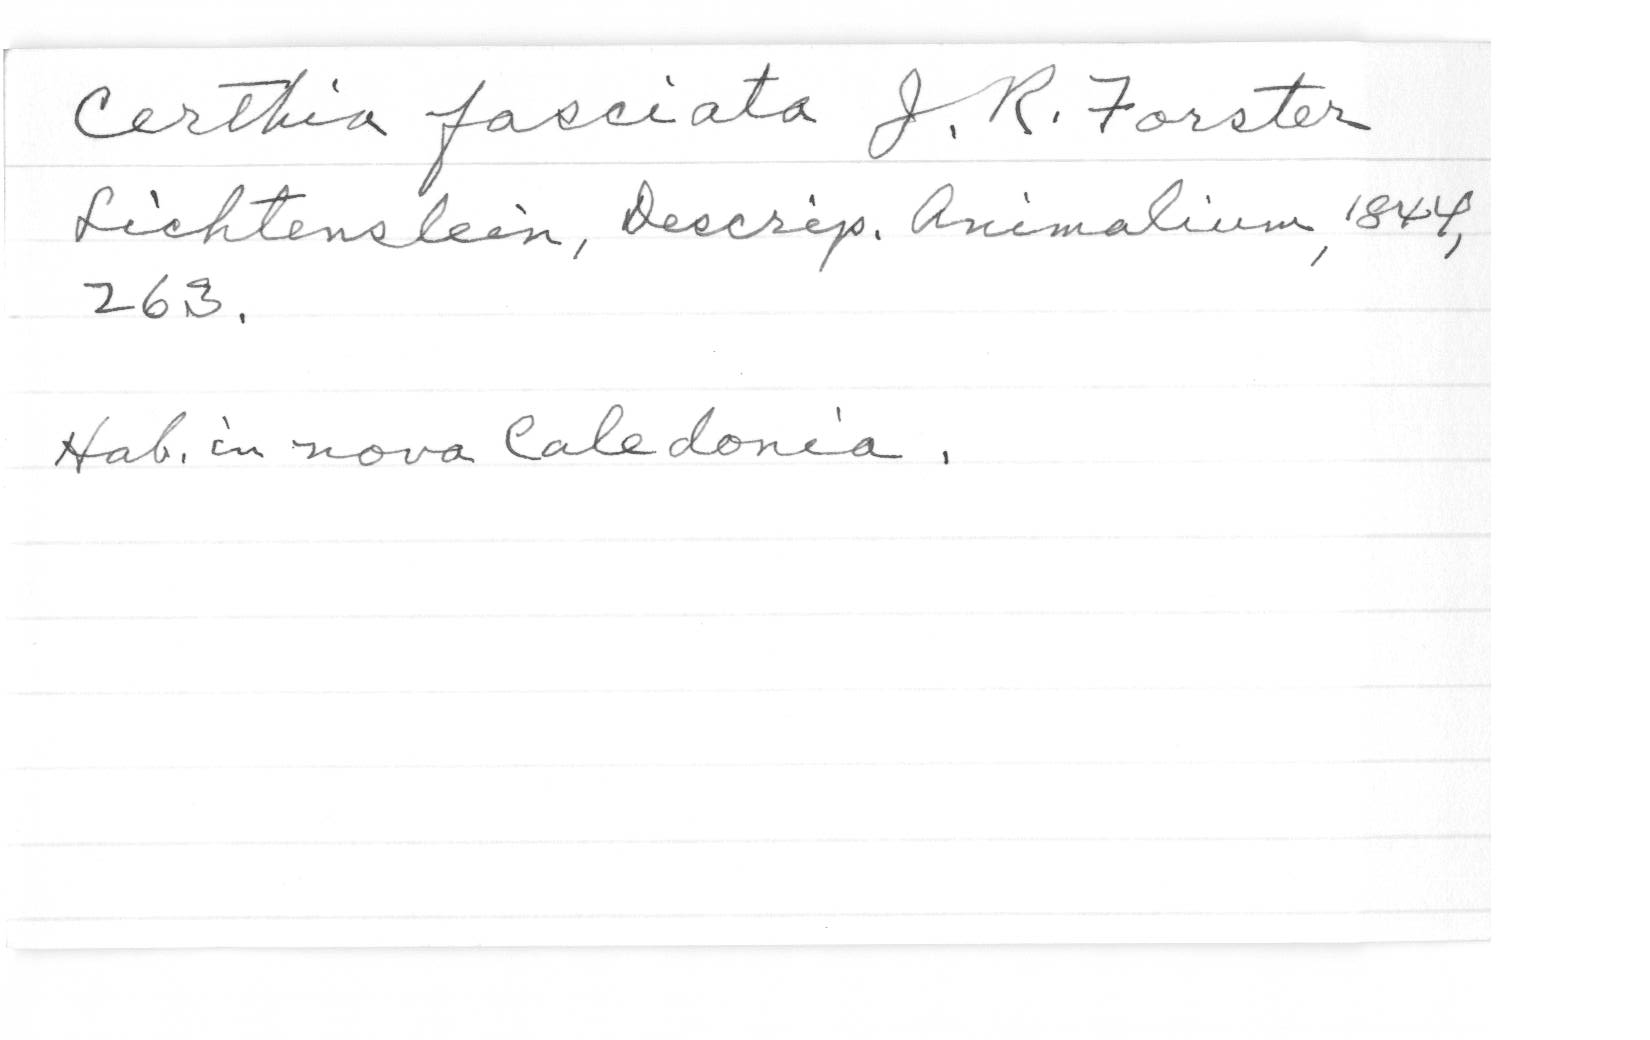 Certhia fasciata J. R. Forster
Lichtenstein, Descrip. Animalium, 1844,
263.
Hab. in nova Caledonia.